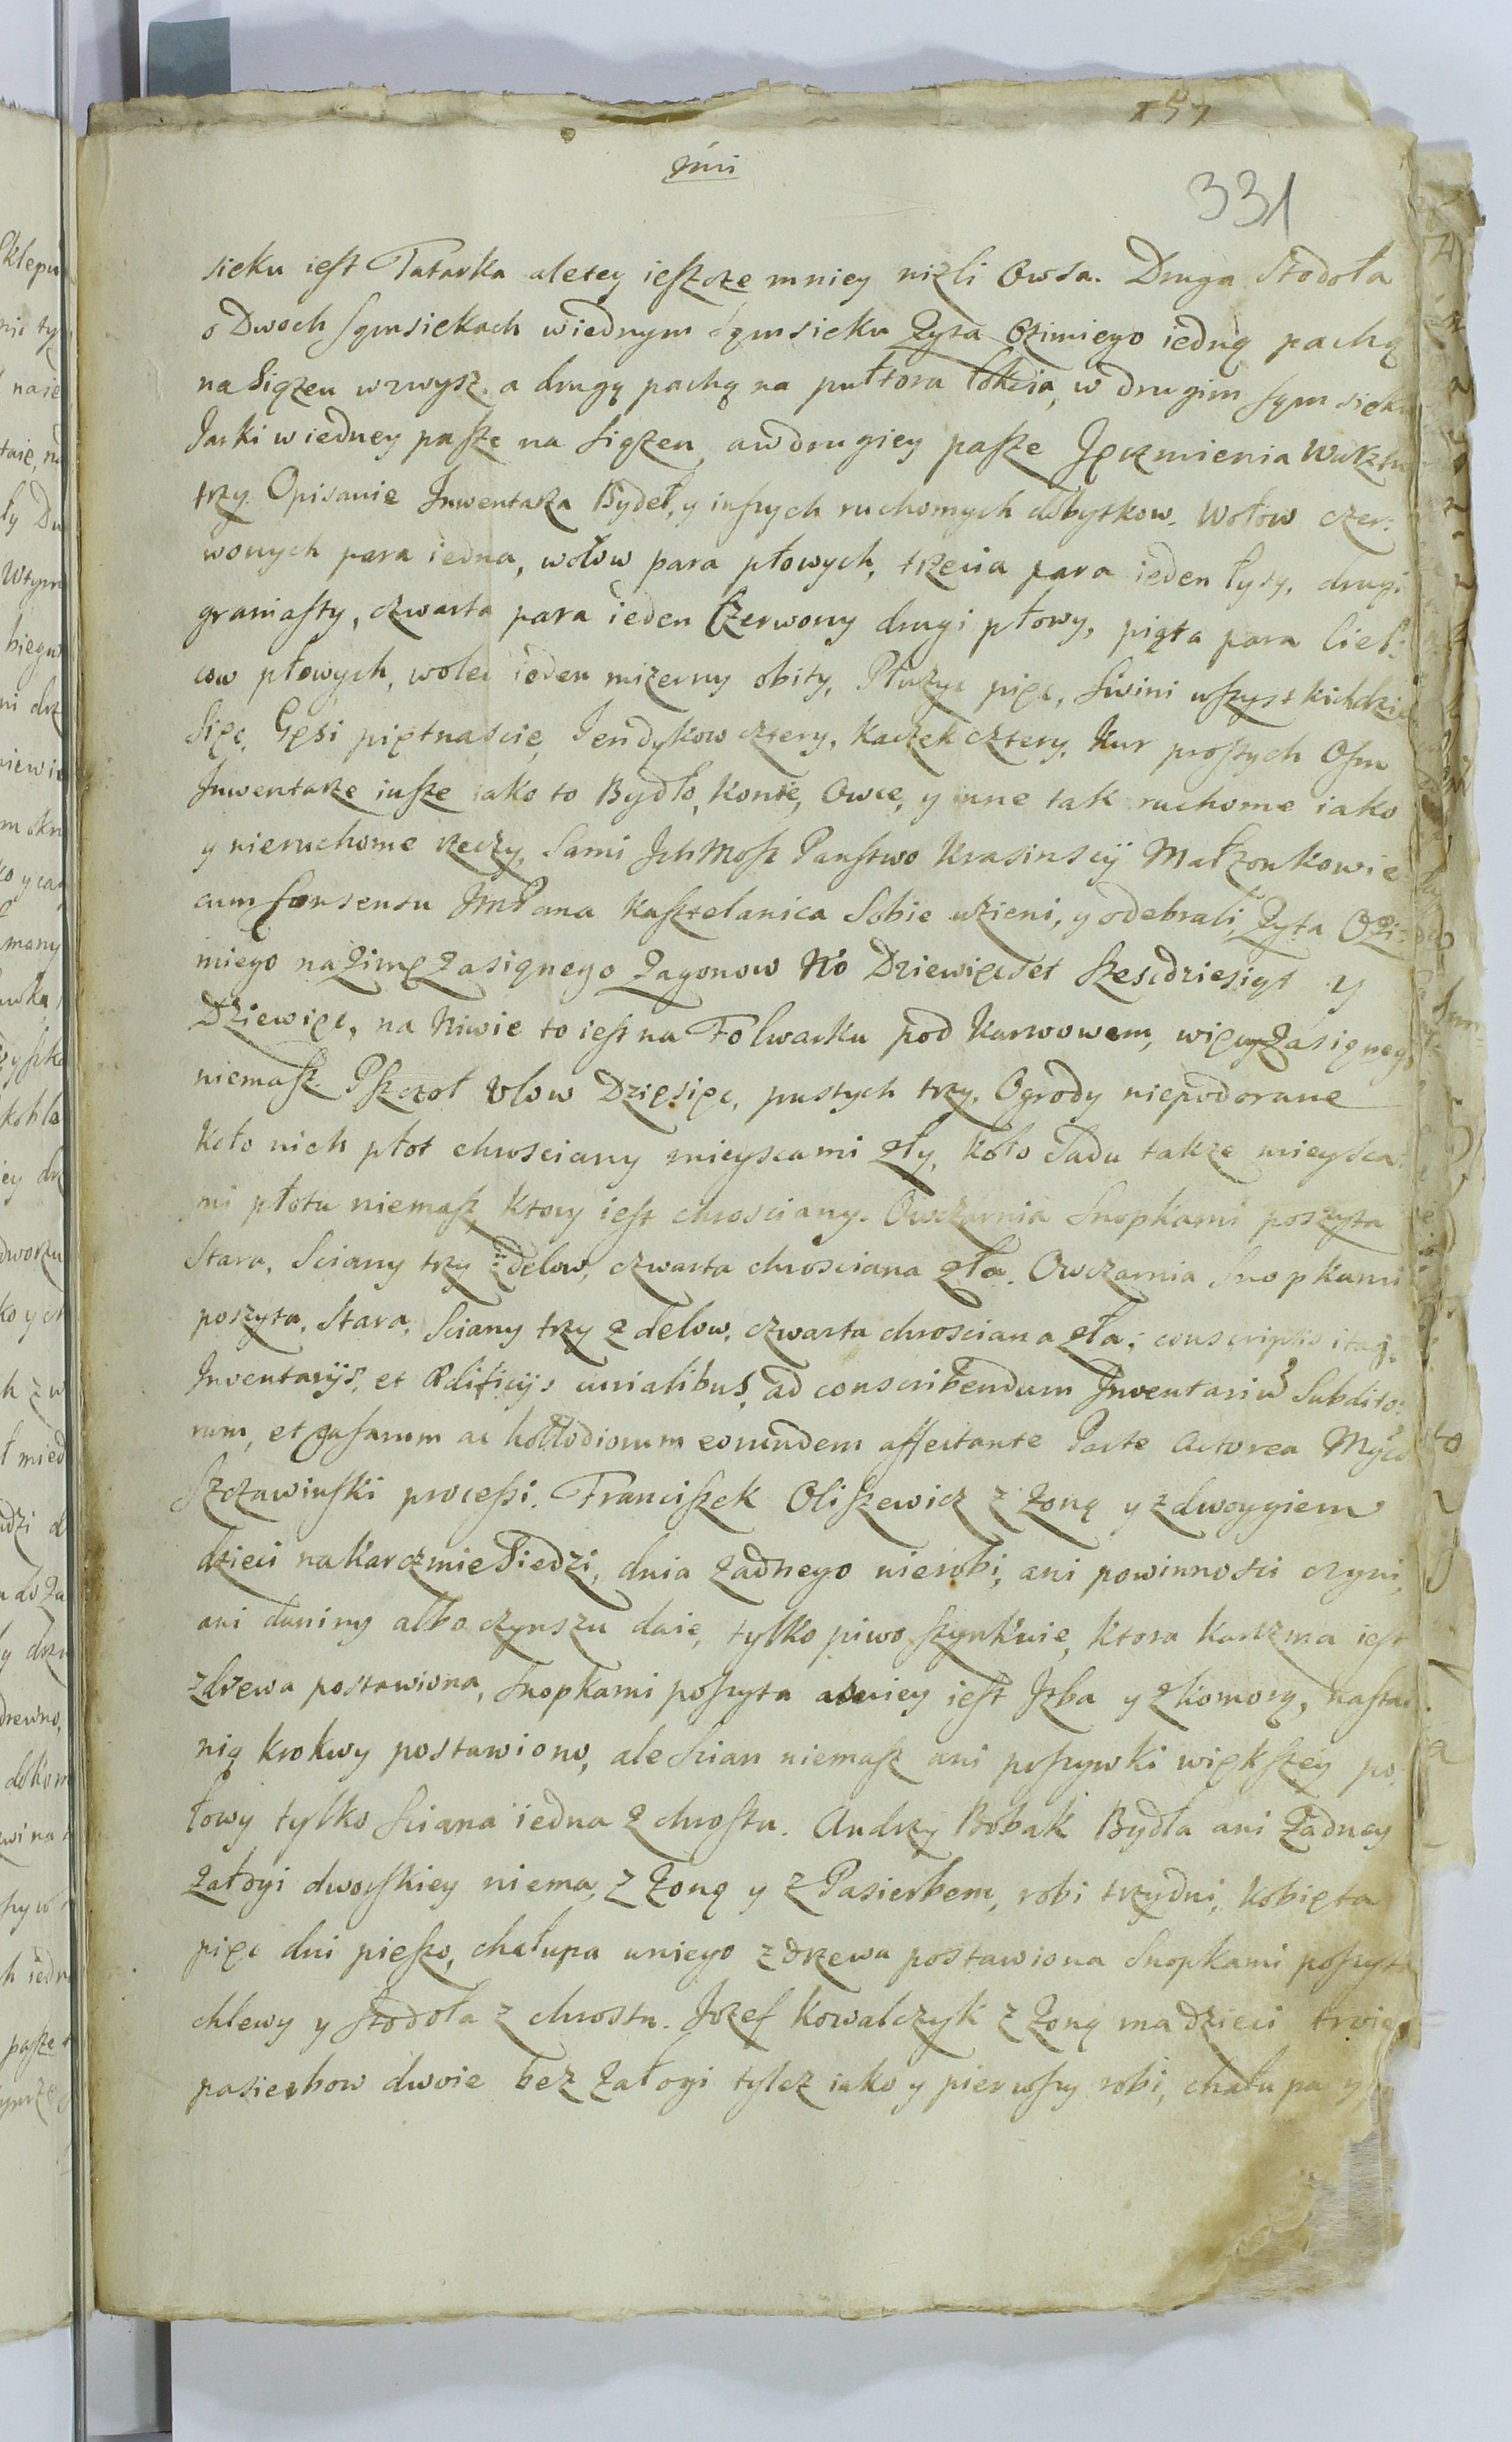 157
331
sieku iest Tatarka ale tey ieszcze mniey nizli Owsa. Druga Stodoła
o Dwoch sąmsiekach wiednym sąmsieku Zyta Ozimiego iedną pachą
na siązen wzwysz, a drugą pachą na pułtora łokcia, w drugim sąmsieku
Jarki wiedney paszę na siązen, aw drugiey pasze Jęczmienia
trzy. Opisanie Inwentarza Bydeł, y inszych ruchomych dobytkow. Wołow czer:
wonych para iedna, wołow para płowych, trzecia para ieden łysy, drugi
graniasty, czwarta para ieden Czerwony drugi płowy, piąta para Cieł:
cow płowych, wolec ieden mizerny obity, Płuzyc pięc, Swini wszystkich dzie
sięc, Gęsi piętnascie, Jendykow cztery, Kaczek cztery, Kur prostych Osm
Inwentarze insze iako to Bydło, Konie, Owce, y inne tak ruchome iako
y nieruchome rzeczy, Sami Ichmosz Panstwo Krasinscÿ Małzonkowie
cum Consensu ImPana Kasztelanica Sobie wzieni, y odebrali, Zyta Ozi:
miego na Zimę Zasianego Zagonow No Dziewięcset szescdziesiąt y
Dziewięc, na Niwie to iest na Folwarku pod Karwowem, więcy Zasianego
niemasz. Pszczoł Ulow Dziesięc, pustych trzy. Ogrody niepodorane
Koło nich płot chrosciany mieyscami zły, koło Sadu takze mieysca:
mi płotu niemasz ktory iest chrosciany. Owczarnia Snopkami poszyta
Stara, Sciany trzy z delow, czwarta chrosciana zła. Owczarnia Snopkami
poszyta, Stara, Sciany trzy z delow, czwarta chrosciana zła; conscriptis itaq:
Inventarijs, et Ædificijs curialibus, ad conscribendum Inventariũ Subdito:
rum, et Casarum ac eorundem affectante Parte Actorea
Szczawinski processi. Franciszek Oliszewicz z Zoną y z dwoygiem
dzieci na Karczmie Siedzi, dnia Zadnego nierobi, ani powinnosci czyni,
ani daniny albo czynszu daie, tylko piwo szynkuie, ktora Karczma iest
zdrzewa postawiona, Snopkami poszyta awniey iest Izba y z komorą, nasta
nią krokwy postawiono, ale Scian niemasz ani poszywki większey po
łowy tylko Sciana iedna z chrostu. Andrzy Bobak Bydła ani Zadney
Załogi dworskiey niema, z Zoną y z Pasierbem, robi trzydni, Kobięta
pięc dni pieszo, chałupa uniego z drzewa postawiona Snopkami poszyta
chlewy y stodoła z chrostu. Jozef Kowalczyk z Zoną ma dzieci troie
pasierbow dwoie bez Załogi tylez iako y pierwszy robi, chałupa y